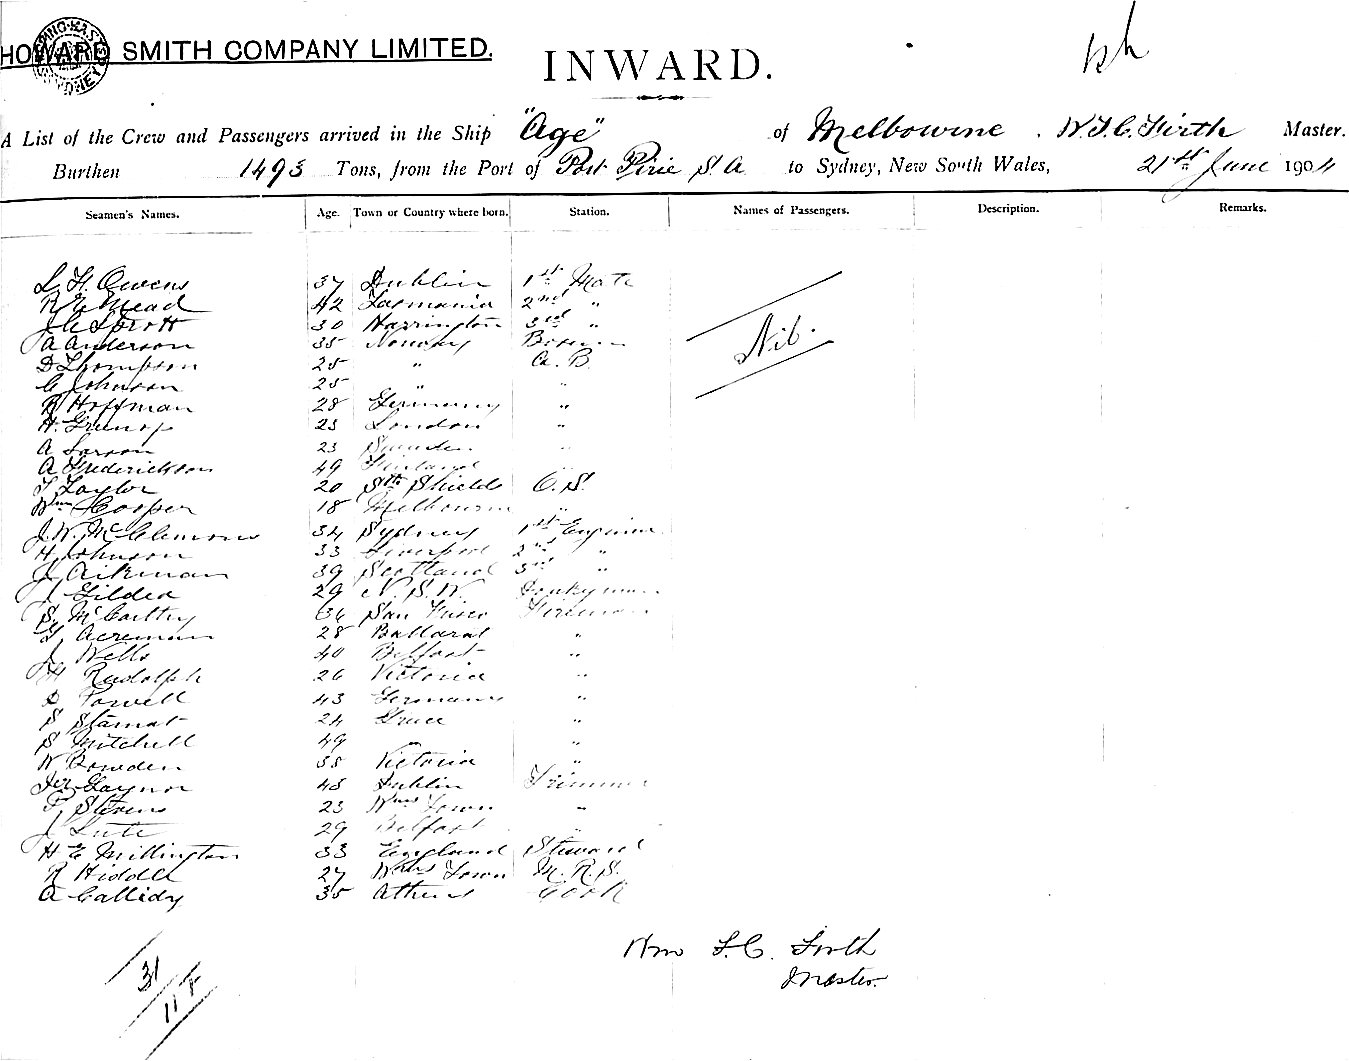 HOWARD SMITH COMPANY LIMITED.
INWARD.
A List of the Crew and Passengers arrived in the Ship "Age" of Melbourne . W. F. C. Firth Master.
Burthen 1493 Tons, from the Port of Port Pirie S A to Sydney, New South Wales, 21st June 1904
Seamen's Names. Age. Town or Country where born. Station. Names of Passengers. Description. Remarks.
L. H. Owens 37 Dublin 1st Mate
R E Mead 42 Tasmania 2nd "
J C Sprott 30 Harrington 3rd "
A Anderson 35 Norway Bosun
D Thompson 25 " A. B.
C Johnson 25 " "
R Hoffman 28 Germany "
H. Greenop 23 London "
A Larson 23 Sweden "
A Frederickson 49 Finland "
T Taylor 20 Sth Shields O. S.
Wm Cooper 18 Melbourne "
J. W. McClemons 34 Sydney 1st Engineer
H Johnson 33 Liverpool 2nd "
J Aikman 39 Scotland 3rd "
J Gilder 29 N. S. W. Donkyman
S. McCarthy 36 San Frisco Fireman
G Acreman 28 Ballarat "
J Wells 40 Belfast "
H Rudolph 26 Victoria "
D Powell 43 Germany "
S Stamat 24 Greece "
S Mitchell 49 "
W Bowden 35 Victoria "
Jer Gaynor 45 Dublin Trimmer
F Stevens 23 Wms Town "
J Lute 29 Belfast "
H E Millington 33 England Steward
R Hiddle 27 Wms Town M. R. S.
A Callidy 35 Athens Cook
Nil.
Wm F. C. Firth
Master.
31
118